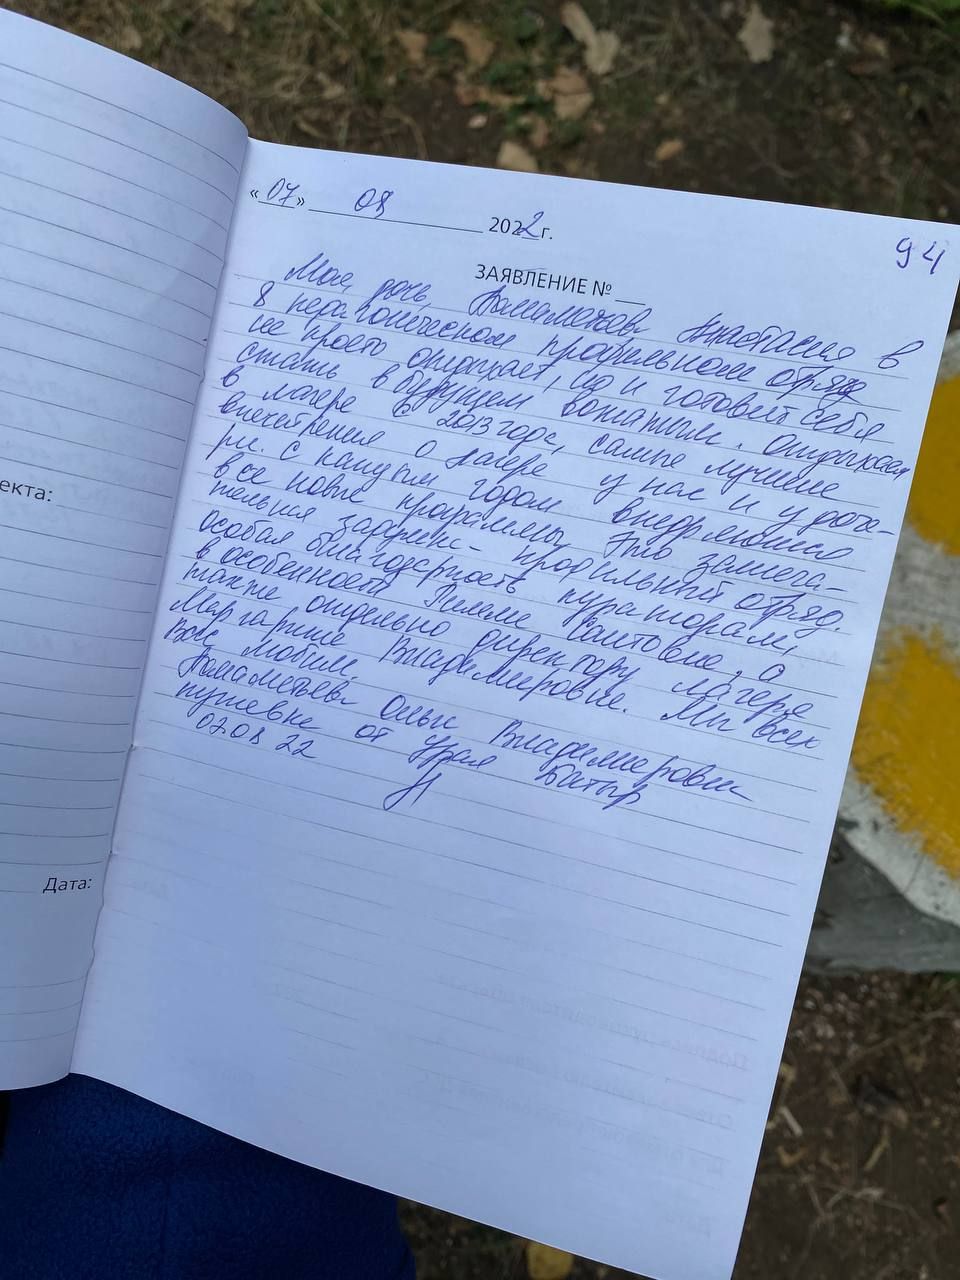 «07» 08 2022 г.
94
ЗАЯВЛЕНИЕ № __
Моя дочь, Анастасия в
8 педагогическом профильном отряде
не просто отдыхает, но и готовит себя
стать в будущем вожатым. Отдыхаем
в лагере с 2013 года, самые лучшие
впечатления о лагере у нас и у доче-
ри. С каждым годом внедряются
все новые программы. Это замеча-
тельная задумка - профильный отряд.
Особая благодарность кураторам,
в особенности Саитовне, а
также отдельно директору лагеря
Маргарите Владимировне. Мы всех
Вас любим.
Ольга Владимировна
путевке от Урал Батыр
07 08 22
екта:
Дата: